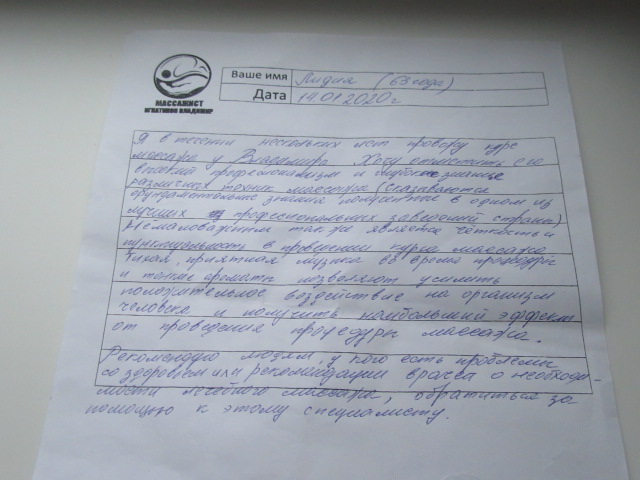 МАССАЖИСТ
ИГНАТЮКОВ ВЛАДИМИР
Ваше имя Лидия (63 года)
Дата 14.01.2020г
Я в течении нескольких лет провожу курс
массажа у Владимира Хочу отметить его
высокий профессионализм и глубокие знания
различных техник массажа (сказываются
фундаментальные знания полученные в одном из
лучших профессиональных заведений страны)
Немаловажным так же является чёткость и
пунктуальность в проведении курса массажа
Тихая, приятная музыка во время процедур
и тонкие ароматы позволяют усилить
положительное воздействие на организм
человека и получить наибольший эффект
от проведения процедуры массажа.
Рекомендую людям, у кого есть проблемы
со здоровьем или рекомендации врача о необходи-
мости лечебного массажа, обратиться за
помощью к этому специалисту.